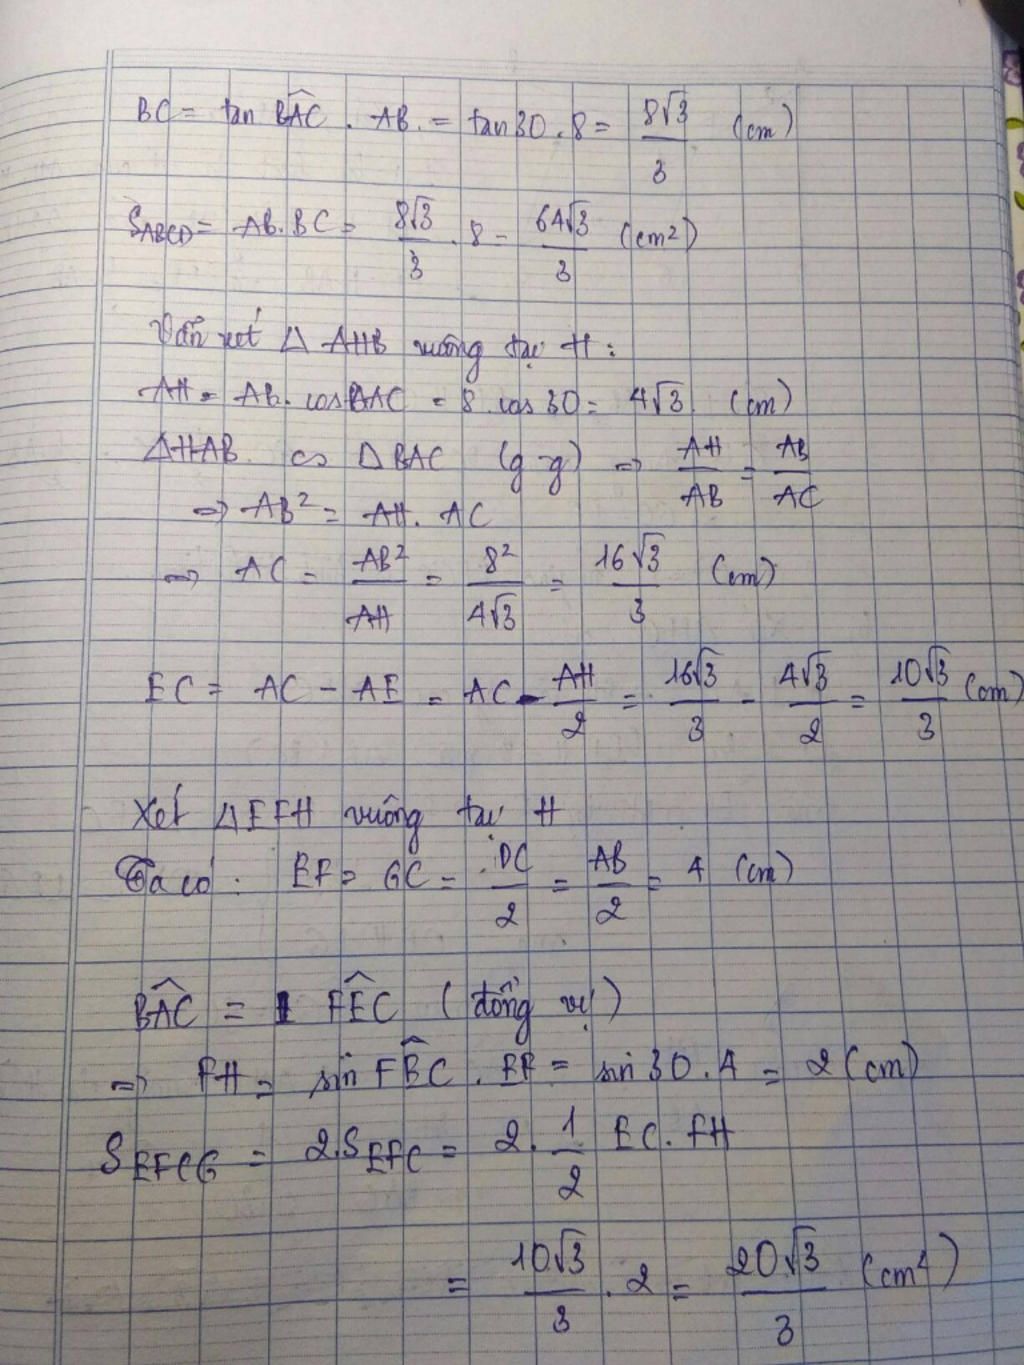 BC = tan BAC . AB = tan 30 . 8 = 8√3/3 (cm)
S_ABCD = AB.BC = 8√3/3 . 8 = 64√3/3 (cm²)
Vẫn xét Δ AHB vuông tại H :
AH = AB. cos BAC = 8. cos 30 = 4√3 (cm)
ΔHAB ∽ ΔBAC (g g) ⇒ AH/AB = AB/AC
⇒ AB² = AH. AC
⇒ AC = AB²/AH = 8²/4√3 = 16√3/3 (cm)
EC = AC - AE = AC - AH/2 = 16√3/3 - 4√3/2 = 10√3/3 (cm)
Xét ΔEFH vuông tại H
Ta có : EF = GC = DC/2 = AB/2 = 4 (cm)
BAC = FEC (đồng vị)
⇒ FH = sin FEC . EF = sin 30 . 4 = 2 (cm)
S_EFCG = 2.S_EFC = 2. 1/2 EC. FH
= 10√3/3 . 2 = 20√3/3 (cm²)